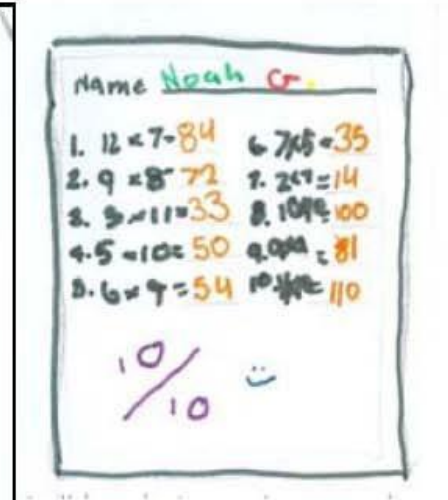 Name Noah G.
1. 12 × 7 = 84
2. 9 × 8 = 72
3. 3 × 11 = 33
4. 5 × 10 = 50
5. 6 × 9 = 54
6. 7×5 = 35
7. 2×7 = 14
8. = 100
9. = 81
10. = 110
10/10